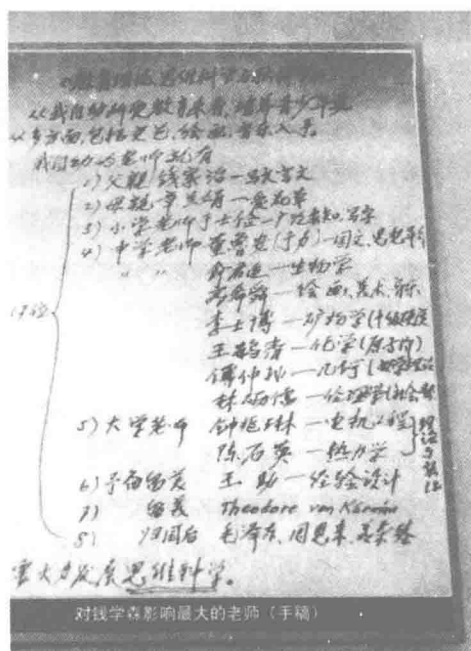 从我自幼所受教育来看,培养青少年要
从多方面,包括文艺、绘画、音乐入手。
我自幼的老师就有
1) 父亲 钱家治—写文言文
2) 母亲 章兰娟—爱花草
3) 小学老师 于士俭—广泛求知,写字
4) 中学老师 董鲁安(于力)—国文,思想革命
" " 俞君适—生物学
高希舜—绘画、美术、音乐
李士博—矿物学(十级硬度
王鹤清—化学(原子价)
傅仲孙—几何(
林砺儒—伦理学(社会发
17位
5) 大学老师 钟兆琳—电机工程
陈石英—热力学
理论与实际
6) 予备留美 王助—经验设计
7) 留美 Theodore von Kármán
8) 归国后 毛泽东、周恩来、聂荣臻
要大力发展思维科学。
对钱学森影响最大的老师(手稿)